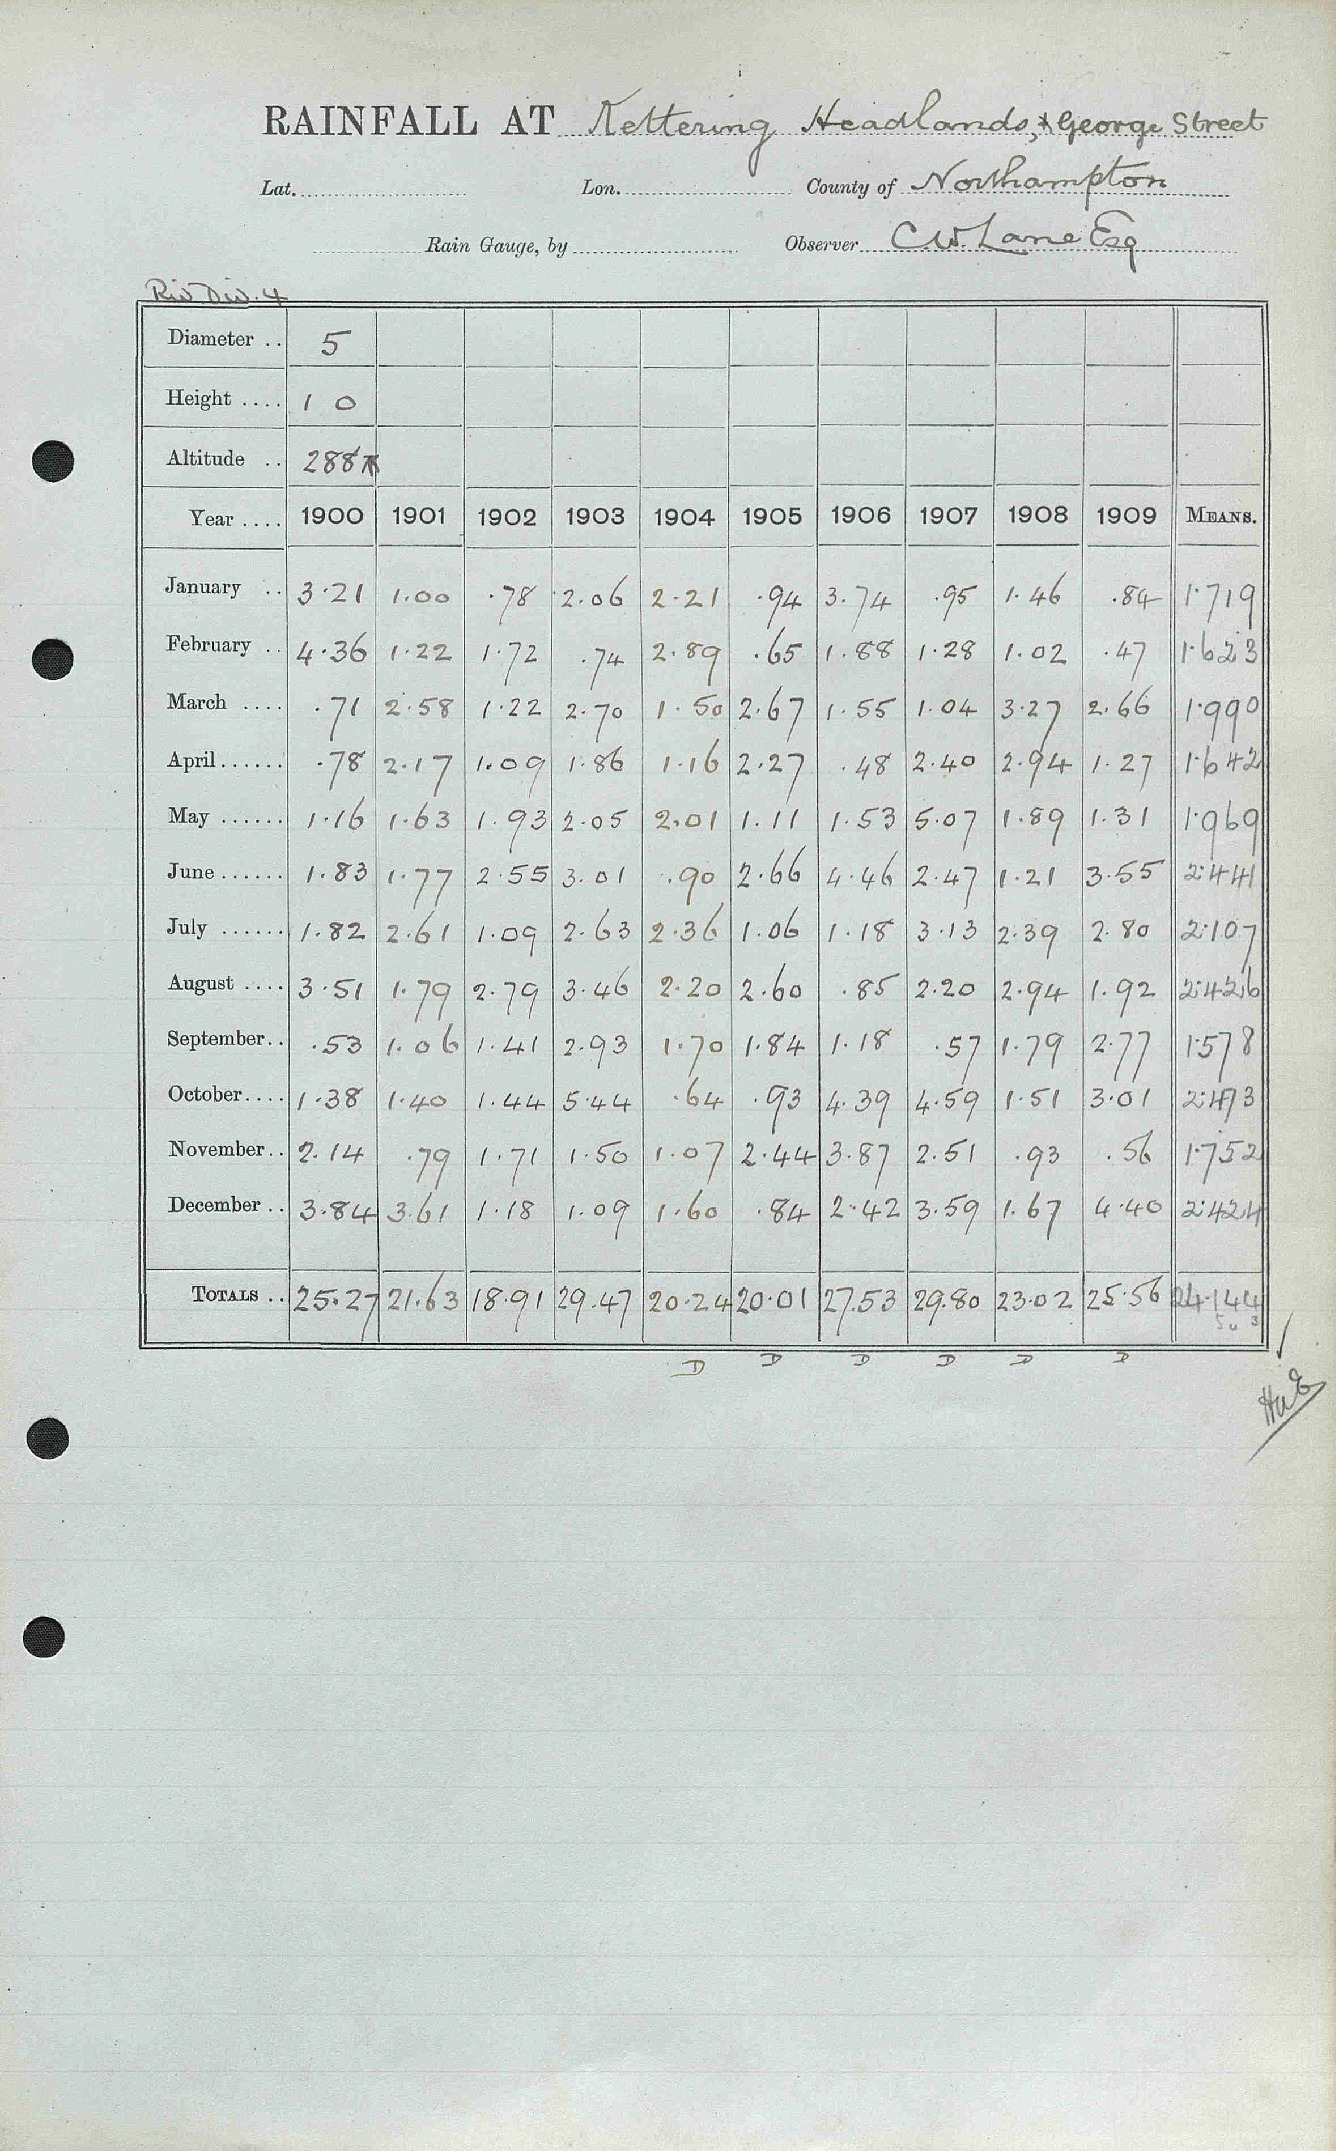 RAINFALL AT Kettering Headlands, & George Street
Lat. Lon. County of Northampton
Rain Gauge, by Observer C.W. Lane Esq
Riv Div. 4
Diameter .. 5
Height .... 1 0
Altitude .. 288
Year .... 1900 1901 1902 1903 1904 1905 1906 1907 1908 1909 MEANS.
January .. 3.21 1.00 .78 2.06 2.21 .94 3.74 .95 1.46 .84 1.719
February .. 4.36 1.22 1.72 .74 2.89 .65 1.88 1.28 1.02 .47 1.623
March .... .71 2.58 1.22 2.70 1.50 2.67 1.55 1.04 3.27 2.66 1.990
April ...... .78 2.17 1.09 1.86 1.16 2.27 .48 2.40 2.94 1.27 1.642
May ...... 1.16 1.63 1.93 2.05 2.01 1.11 1.53 5.07 1.89 1.31 1.969
June ...... 1.83 1.77 2.55 3.01 .90 2.66 4.46 2.47 1.21 3.55 2.441
July ...... 1.82 2.61 1.09 2.63 2.36 1.06 1.18 3.13 2.39 2.80 2.107
August .... 3.51 1.79 2.79 3.46 2.20 2.60 .85 2.20 2.94 1.92 2.426
September .. .53 1.06 1.41 2.93 1.70 1.84 1.18 .57 1.79 2.77 1.578
October .... 1.38 1.40 1.44 5.44 .64 .93 4.39 4.59 1.51 3.01 2.473
November .. 2.14 .79 1.71 1.50 1.07 2.44 3.87 2.51 .93 .56 1.752
December .. 3.84 3.61 1.18 1.09 1.60 .84 2.42 3.59 1.67 4.40 2.424
TOTALS .. 25.27 21.63 18.91 29.47 20.24 20.01 27.53 29.80 23.02 25.56 24.144
D D D D D D